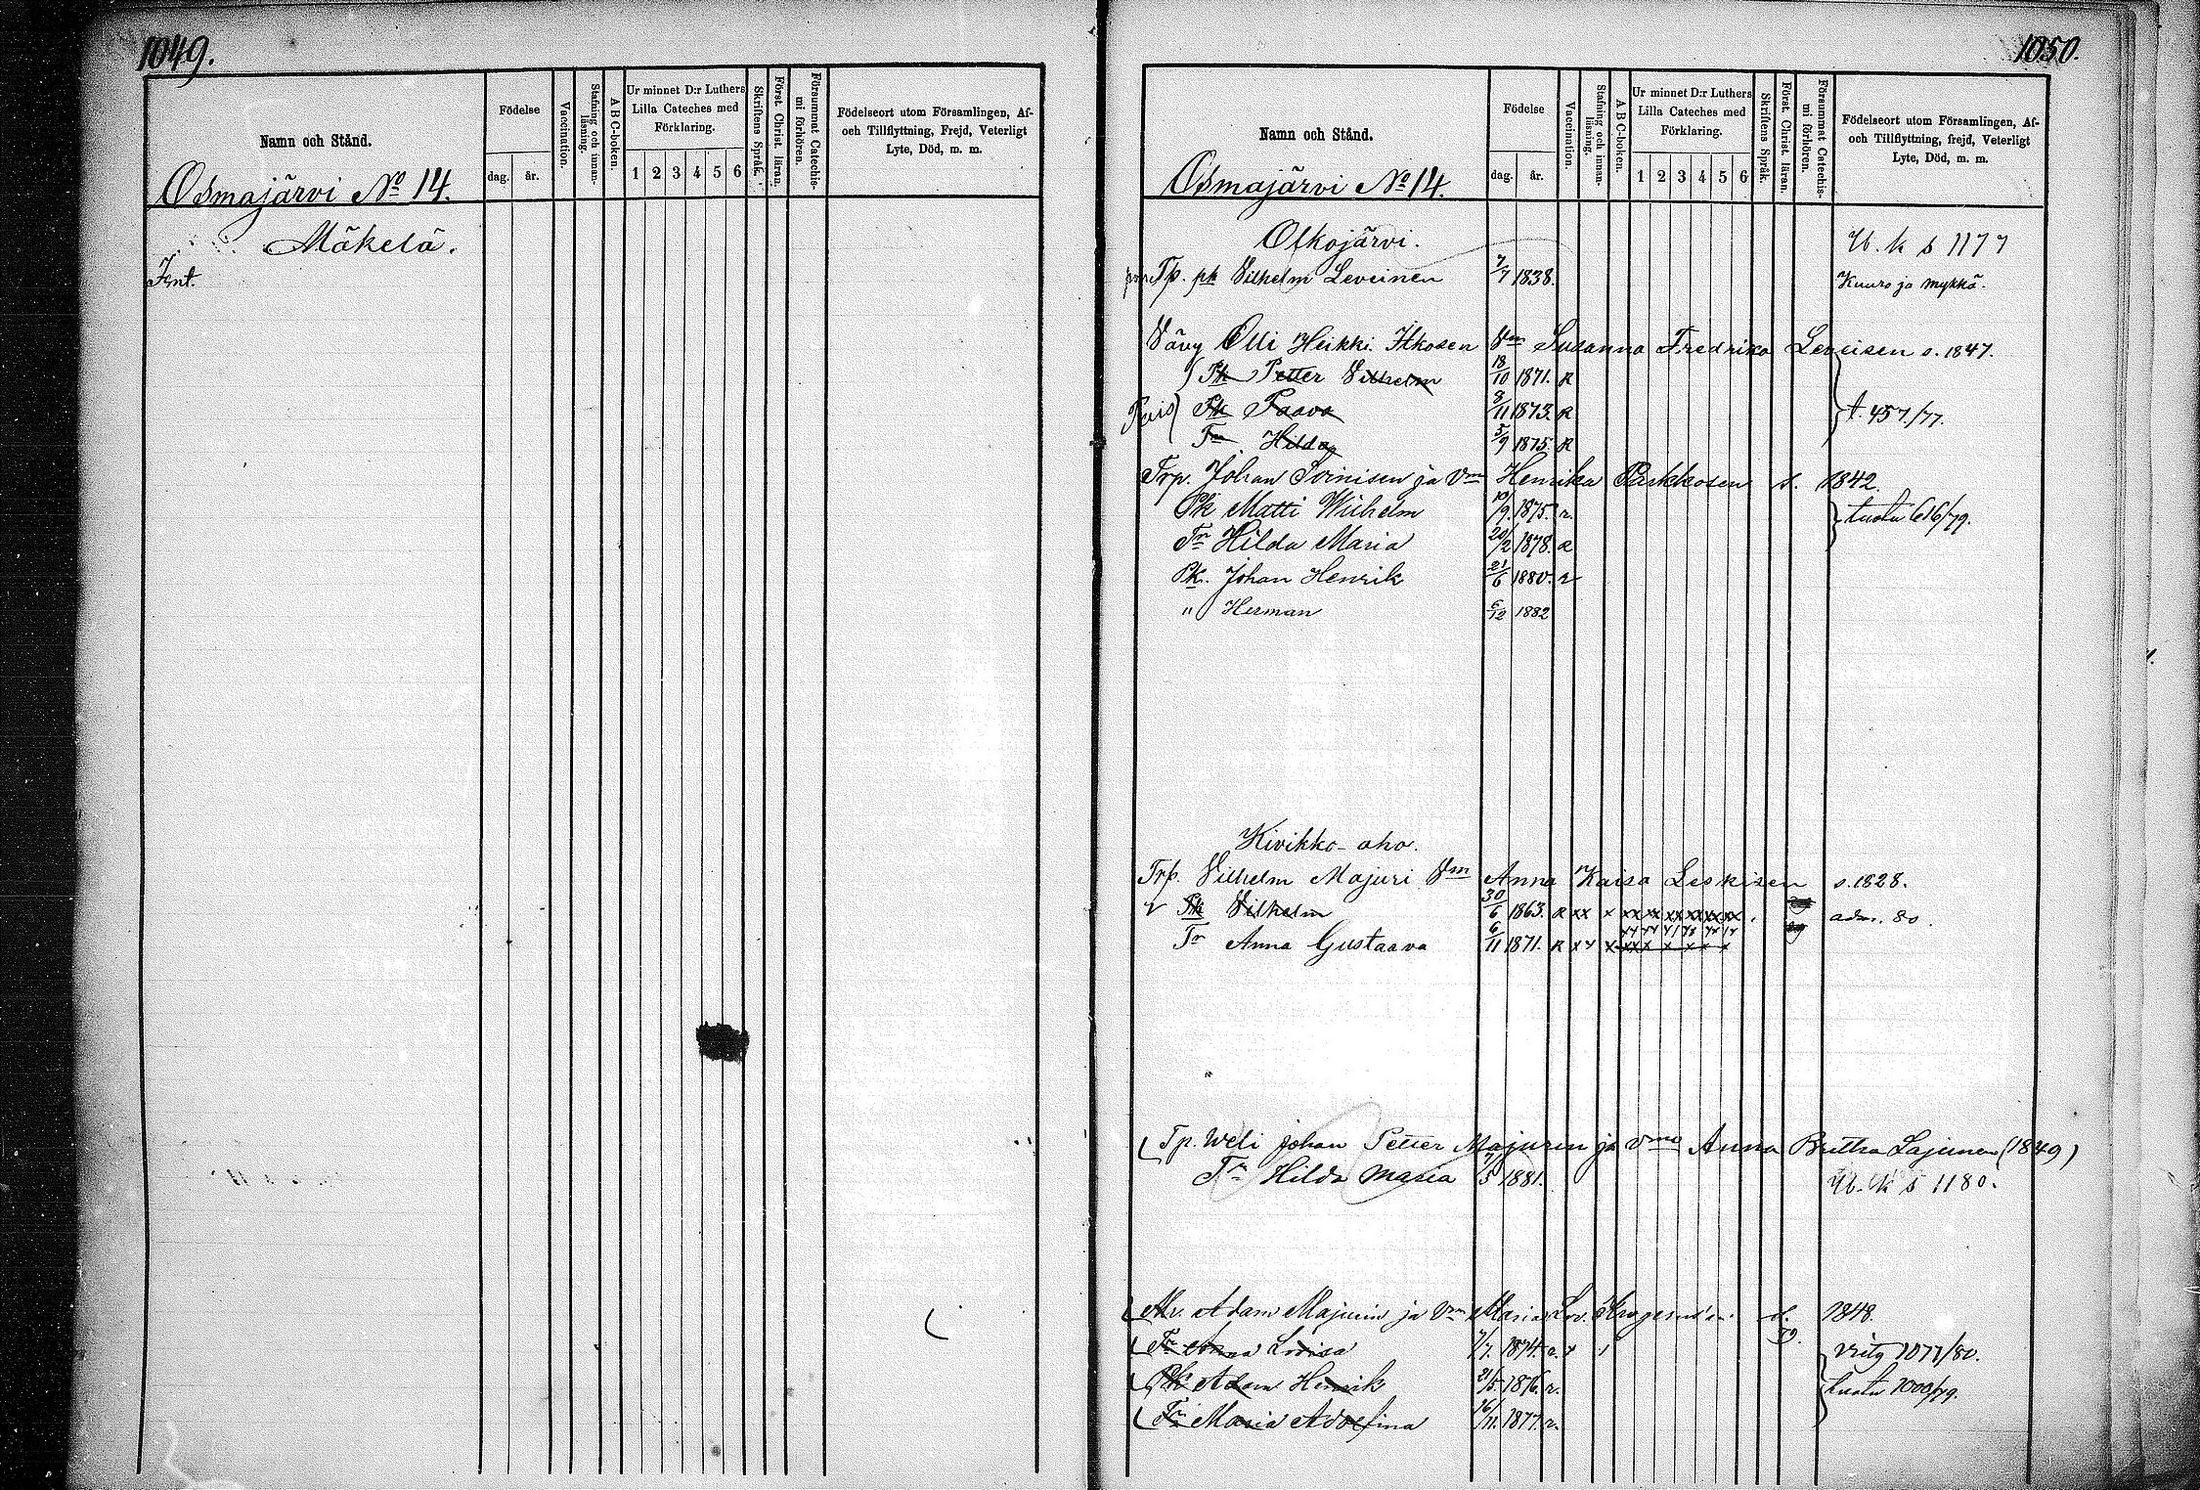 1049.
Namn och Stånd.
Födelse
dag. år.
Vaccination.
Stafning och innan-
läsning.
A B C-boken.
Ur minnet D:r Luthers
Lilla Cateches med
Förklaring.
1 2 3 4 5 6
Skriftens Språk.
Först. Christ. läran.
Försummat Catechis-
mi förhören.
Födelseort utom Församlingen, Af-
och Tillflyttning, Frejd, Veterligt
Lyte, Död, m. m.
Osmajärvi No 14.
Mäkelä.
1050.
Namn och Stånd.
Födelse
dag. år.
Vaccination.
Stafning och innan-
läsning.
A B C-boken.
Ur minnet D:r Luthers
Lilla Cateches med
Förklaring.
1 2 3 4 5 6
Skriftens Språk.
Först. Christ. läran.
Försummat Catechis-
mi förhören.
Födelseort utom Församlingen, Af-
och Tillflyttning, frejd, Veterligt
Lyte, Död, m. m.
Osmajärvi No 14.
Olkojärvi. U. k s 1177
Tp. pk Vilhelm Leveinen 7/7 1838. Kuuro ja mykkä.
Vävy Olli Heikki Itkosen Vm Susanna Fredrika Leveisen s. 1847.
Pk Petter Vilhelm 18/10 1871. R
Pois Pk Paavo 8/11 1873. R t. 457/77.
Tr Hilda 5/9 1875. R
Trp. Johan Soinisen ja Vm Henrika Parkkosen s. 1842.
Pk Matti Wilhelm 19/9. 1875. r. tuotu 616/79.
Tr Hilda Maria 20/2 1878. R
Pk. Johan Henrik 21/6 1880. r
" Herman 6/12 1882
Kivikko-aho.
Trp. Vilhelm Majuri Vm Anna Kaisa Leskisen s. 1828.
Pk Vilhelm 30/6 1863. R xx x xx xx xx xx xx xx adm. 80.
Tr Anna Gustaava 6/11 1871. R
Tp. Weli Johan Petter Majurin ja vmo Anna Britha Lajunen (1849)
Tr Hilda Maria 7/5 1881. U. k s 1180.
Adam Majurin ja Vm Maria Lov. s. 1848.
Tr Anna Lovisa 7/7. 1874. 1077/80.
Pk. Adam Henrik 21/5. 1876. r. tuotu 1000/79.
Tr Maria Adolfina 16/11. 1877. r.